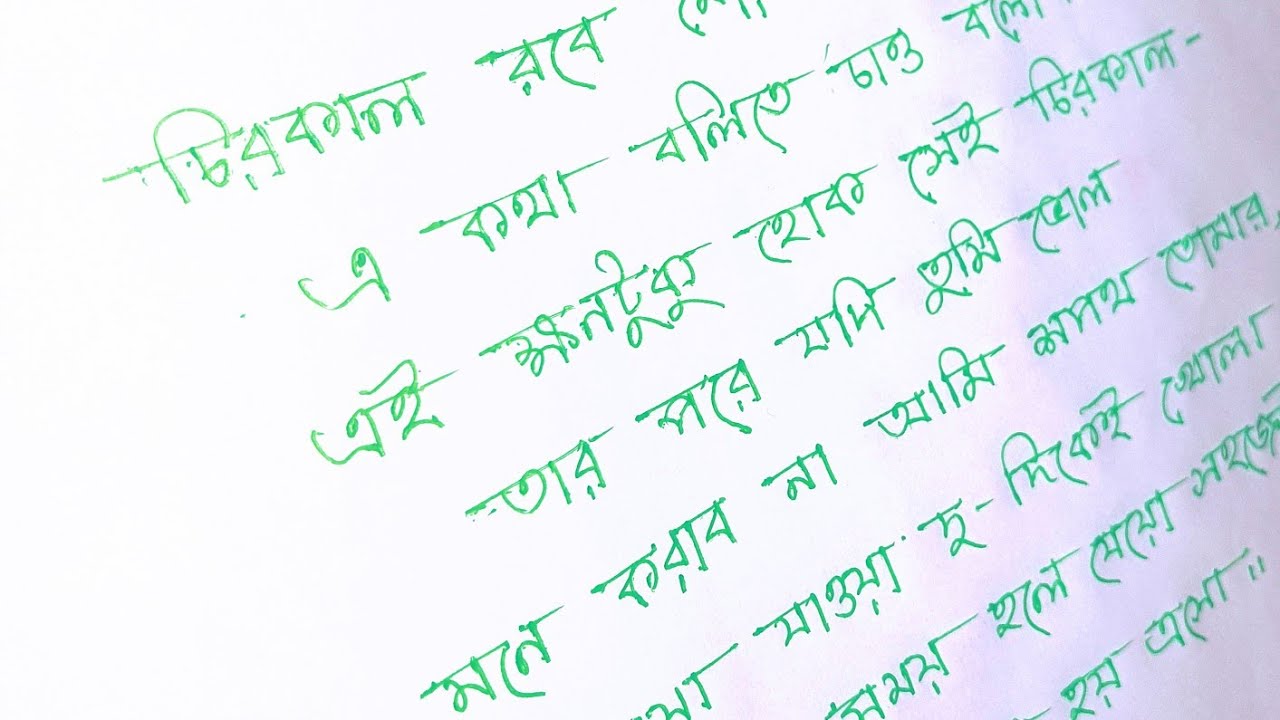 চিরকাল রবে
এ কথা বলিতে চাও বলো
এই ক্ষনটুকু হোক সেই চিরকাল-
তার পরে যদি তুমি ভোল
মনে করাব না আমি শপথ তোমার,
যাওয়া দু-দিকেই খোলা
সময় হলে যেয়ো সহজে
হয় এসো॥